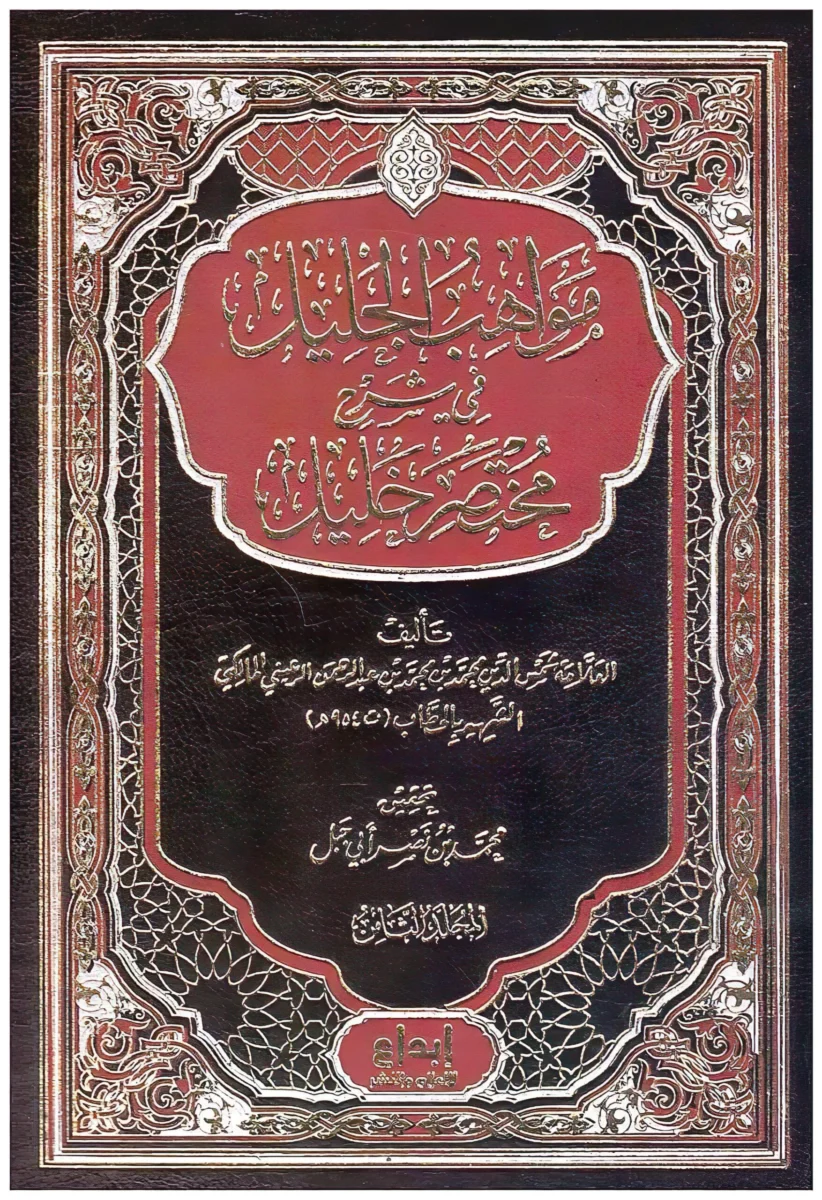 مَوَاهِبُ الجَلِيلِ
فِي شَرْحِ
مُخْتَصَرِ خَلِيلٍ
تأليف
العلامة شمس الدين محمد بن محمد بن عبد الرحمن الرعيني المالكي
الشهير بالحطاب (ت ٩٥٤هـ)
تحقيق
محمد بن نصر أبي جبل
المجلد الثامن
إبداع
للإعلام والنشر